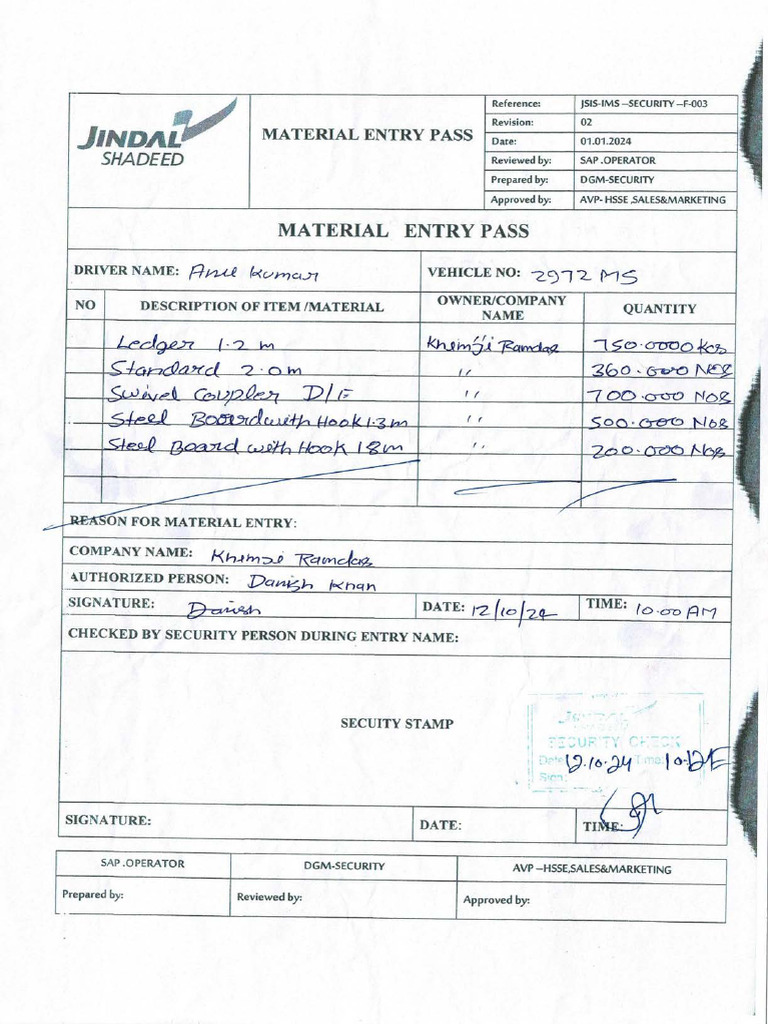 JINDAL
SHADEED
MATERIAL ENTRY PASS
Reference: JSIS-IMS –SECURITY –F-003
Revision: 02
Date: 01.01.2024
Reviewed by: SAP .OPERATOR
Prepared by: DGM-SECURITY
Approved by: AVP- HSSE ,SALES&MARKETING
MATERIAL ENTRY PASS
DRIVER NAME: Anil Kumar VEHICLE NO: 2972 MS
NO DESCRIPTION OF ITEM /MATERIAL OWNER/COMPANY NAME QUANTITY
Ledger 1.2 m Khemji Ramdas 750.0000
Standard 2.0m " 360.000 NOS
Swivel Coupler D/F " 700.000 NOS
Steel Board with Hook 1.3m " 500.000 NOS
Steel Board with Hook 1.8m " 200.000 NOS
REASON FOR MATERIAL ENTRY:
COMPANY NAME: Khimji Ramdas
AUTHORIZED PERSON: Danish Khan
SIGNATURE: Danish DATE: 12/10/24 TIME: 10.00 AM
CHECKED BY SECURITY PERSON DURING ENTRY NAME:
SECUITY STAMP
JINDAL
SHADEED
SECURITY CHECK
Date 12.10.24 Time:
Sign:
SIGNATURE: DATE: TIME:
SAP .OPERATOR DGM-SECURITY AVP –HSSE,SALES&MARKETING
Prepared by: Reviewed by: Approved by: